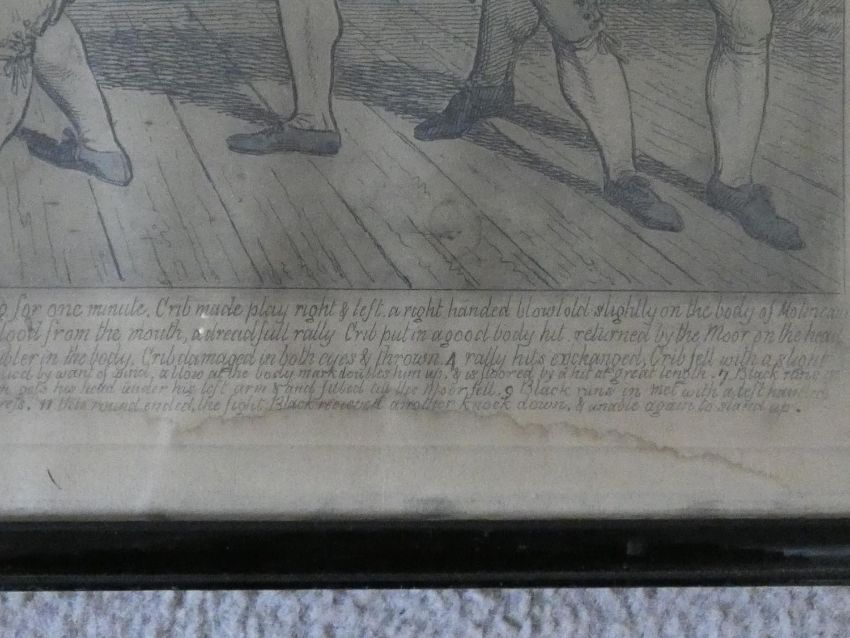 for one minute. Crib made play right & left. a right handed blow told slightly on the body of Molineau
blood from the mouth, a dreadfull rally Crib put in a good body hit returned by the Moor on the head
in the body. Crib damaged in both eyes & thrown. 4 rally hits exchanged, Crib fell with a slight
by want of wind, a blow at the body mark doubles him up, & is floored by a hit at great length. 7 Black runs
gets his head under his left arm & and fibbed till the Moor fell. 9 Black runs in met with a left handed
11 this round ended the fight Black recieved another knock down. & unable again to stand up.